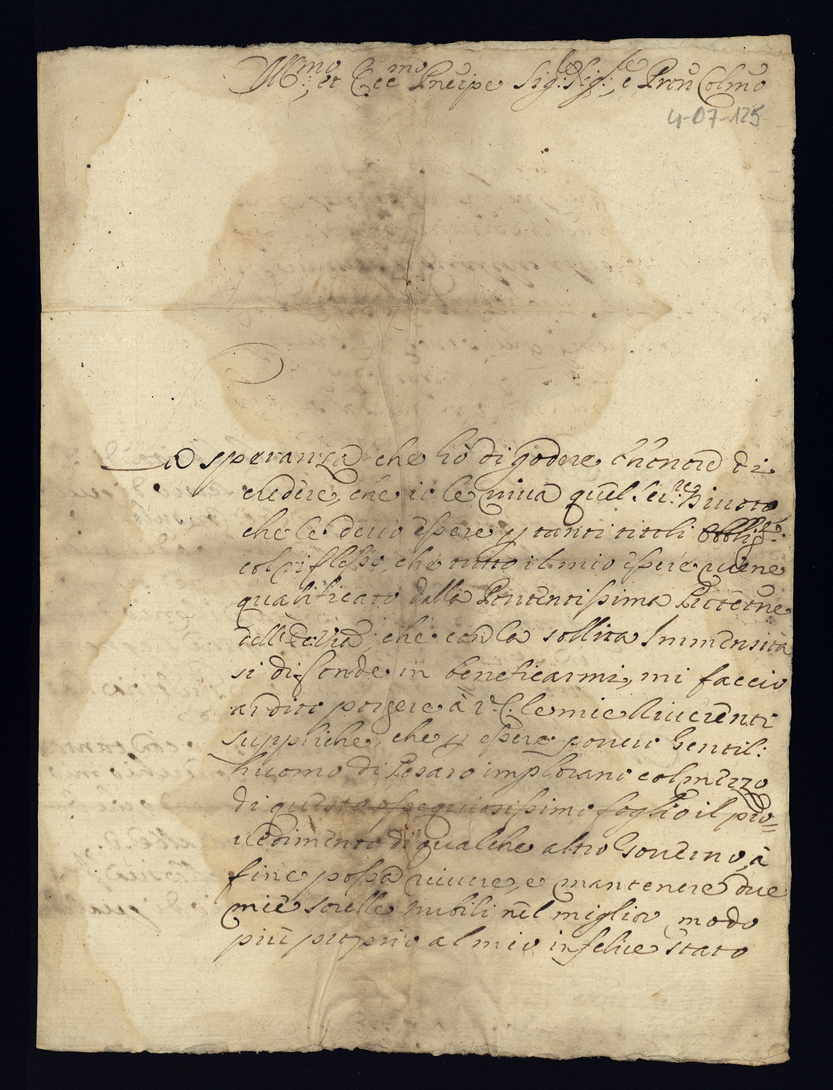 Ill:mo et Ecc:mo Prencipe Sig:r Sig:r e Pron Colmo
4-07-125
La speranza che hò di godere l'honore di
credere, che io le viva quel Ser:re Divoto
che le devo essere p tanti titoli obblig:to
col riflesso, che tutto il mio essere viene
qualificato dalla Protentissima
che con la sollita Immensità
si difonde in beneficarmi, mi faccio
ardito porgere à V.E. le mie Riverenti
suppliche, che p essere povero Gentil:
huomo di Pesaro implorano col mezzo
di questo ossequiosissimo foglio il pro=
vedimento di qualche altro Governo, à
fine possa vivere, e mantenere due
mie sorelle nubili nel miglior modo
più proprio al mio infelice stato